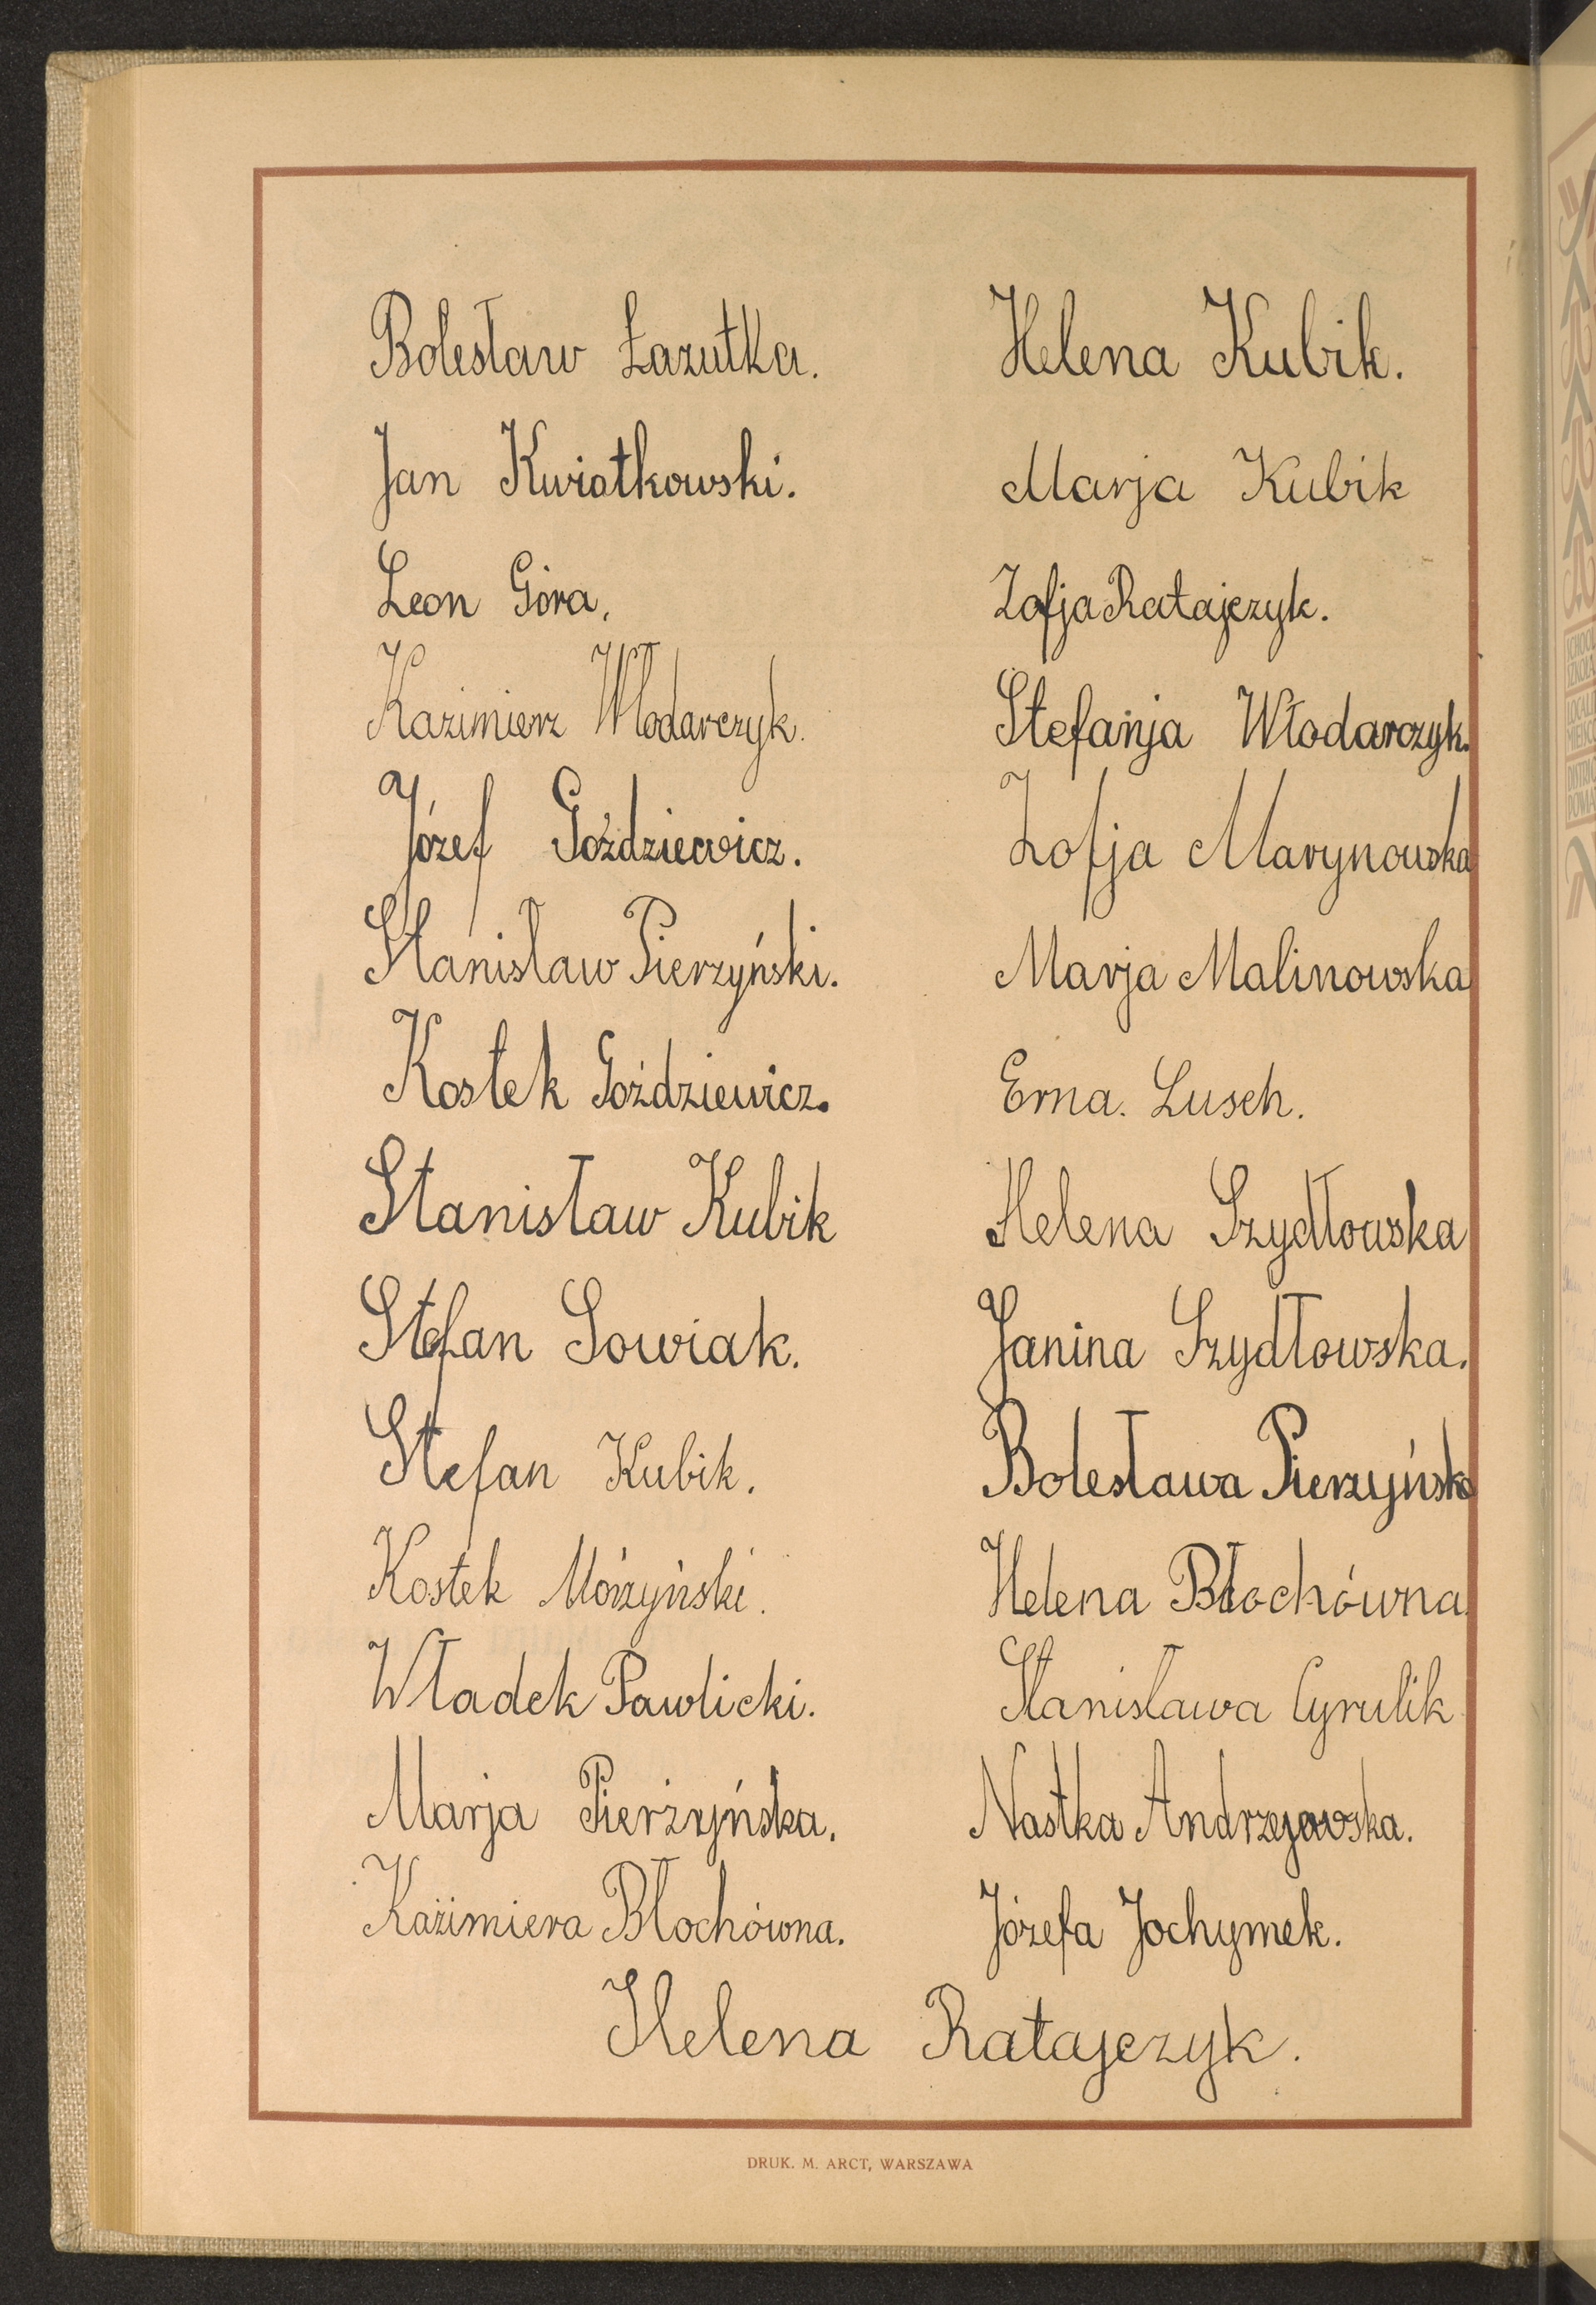 Bolesław Łazutka.
Jan Kwiatkowski.
Leon Góra.
Kazimierz Włodarczyk.
Józef Goździewicz.
Stanisław Pierzyński.
Kostek Goździewicz.
Stanisław Kubik
Stefan Sowiak.
Stefan Kubik.
Kostek Mórzyński.
Władek Pawlicki.
Marja Pierżyńska.
Kazimiera Błochówna.
Helena Kubik.
Marja Kubik
Zofja Ratajczyk.
Stefanja Włodarczyk.
Zofja Marynowska
Marja Malinowska
Erna. Lusch.
Helena Szydłowska
Janina Szydłowska.
Bolesława Pierzyńska
Helena Błochówna.
Stanisława Cyrulik
Nastka Andrzejewska.
Józefa Jochymek.
Helena Ratajczyk.
DRUK. M. ARCT, WARSZAWA